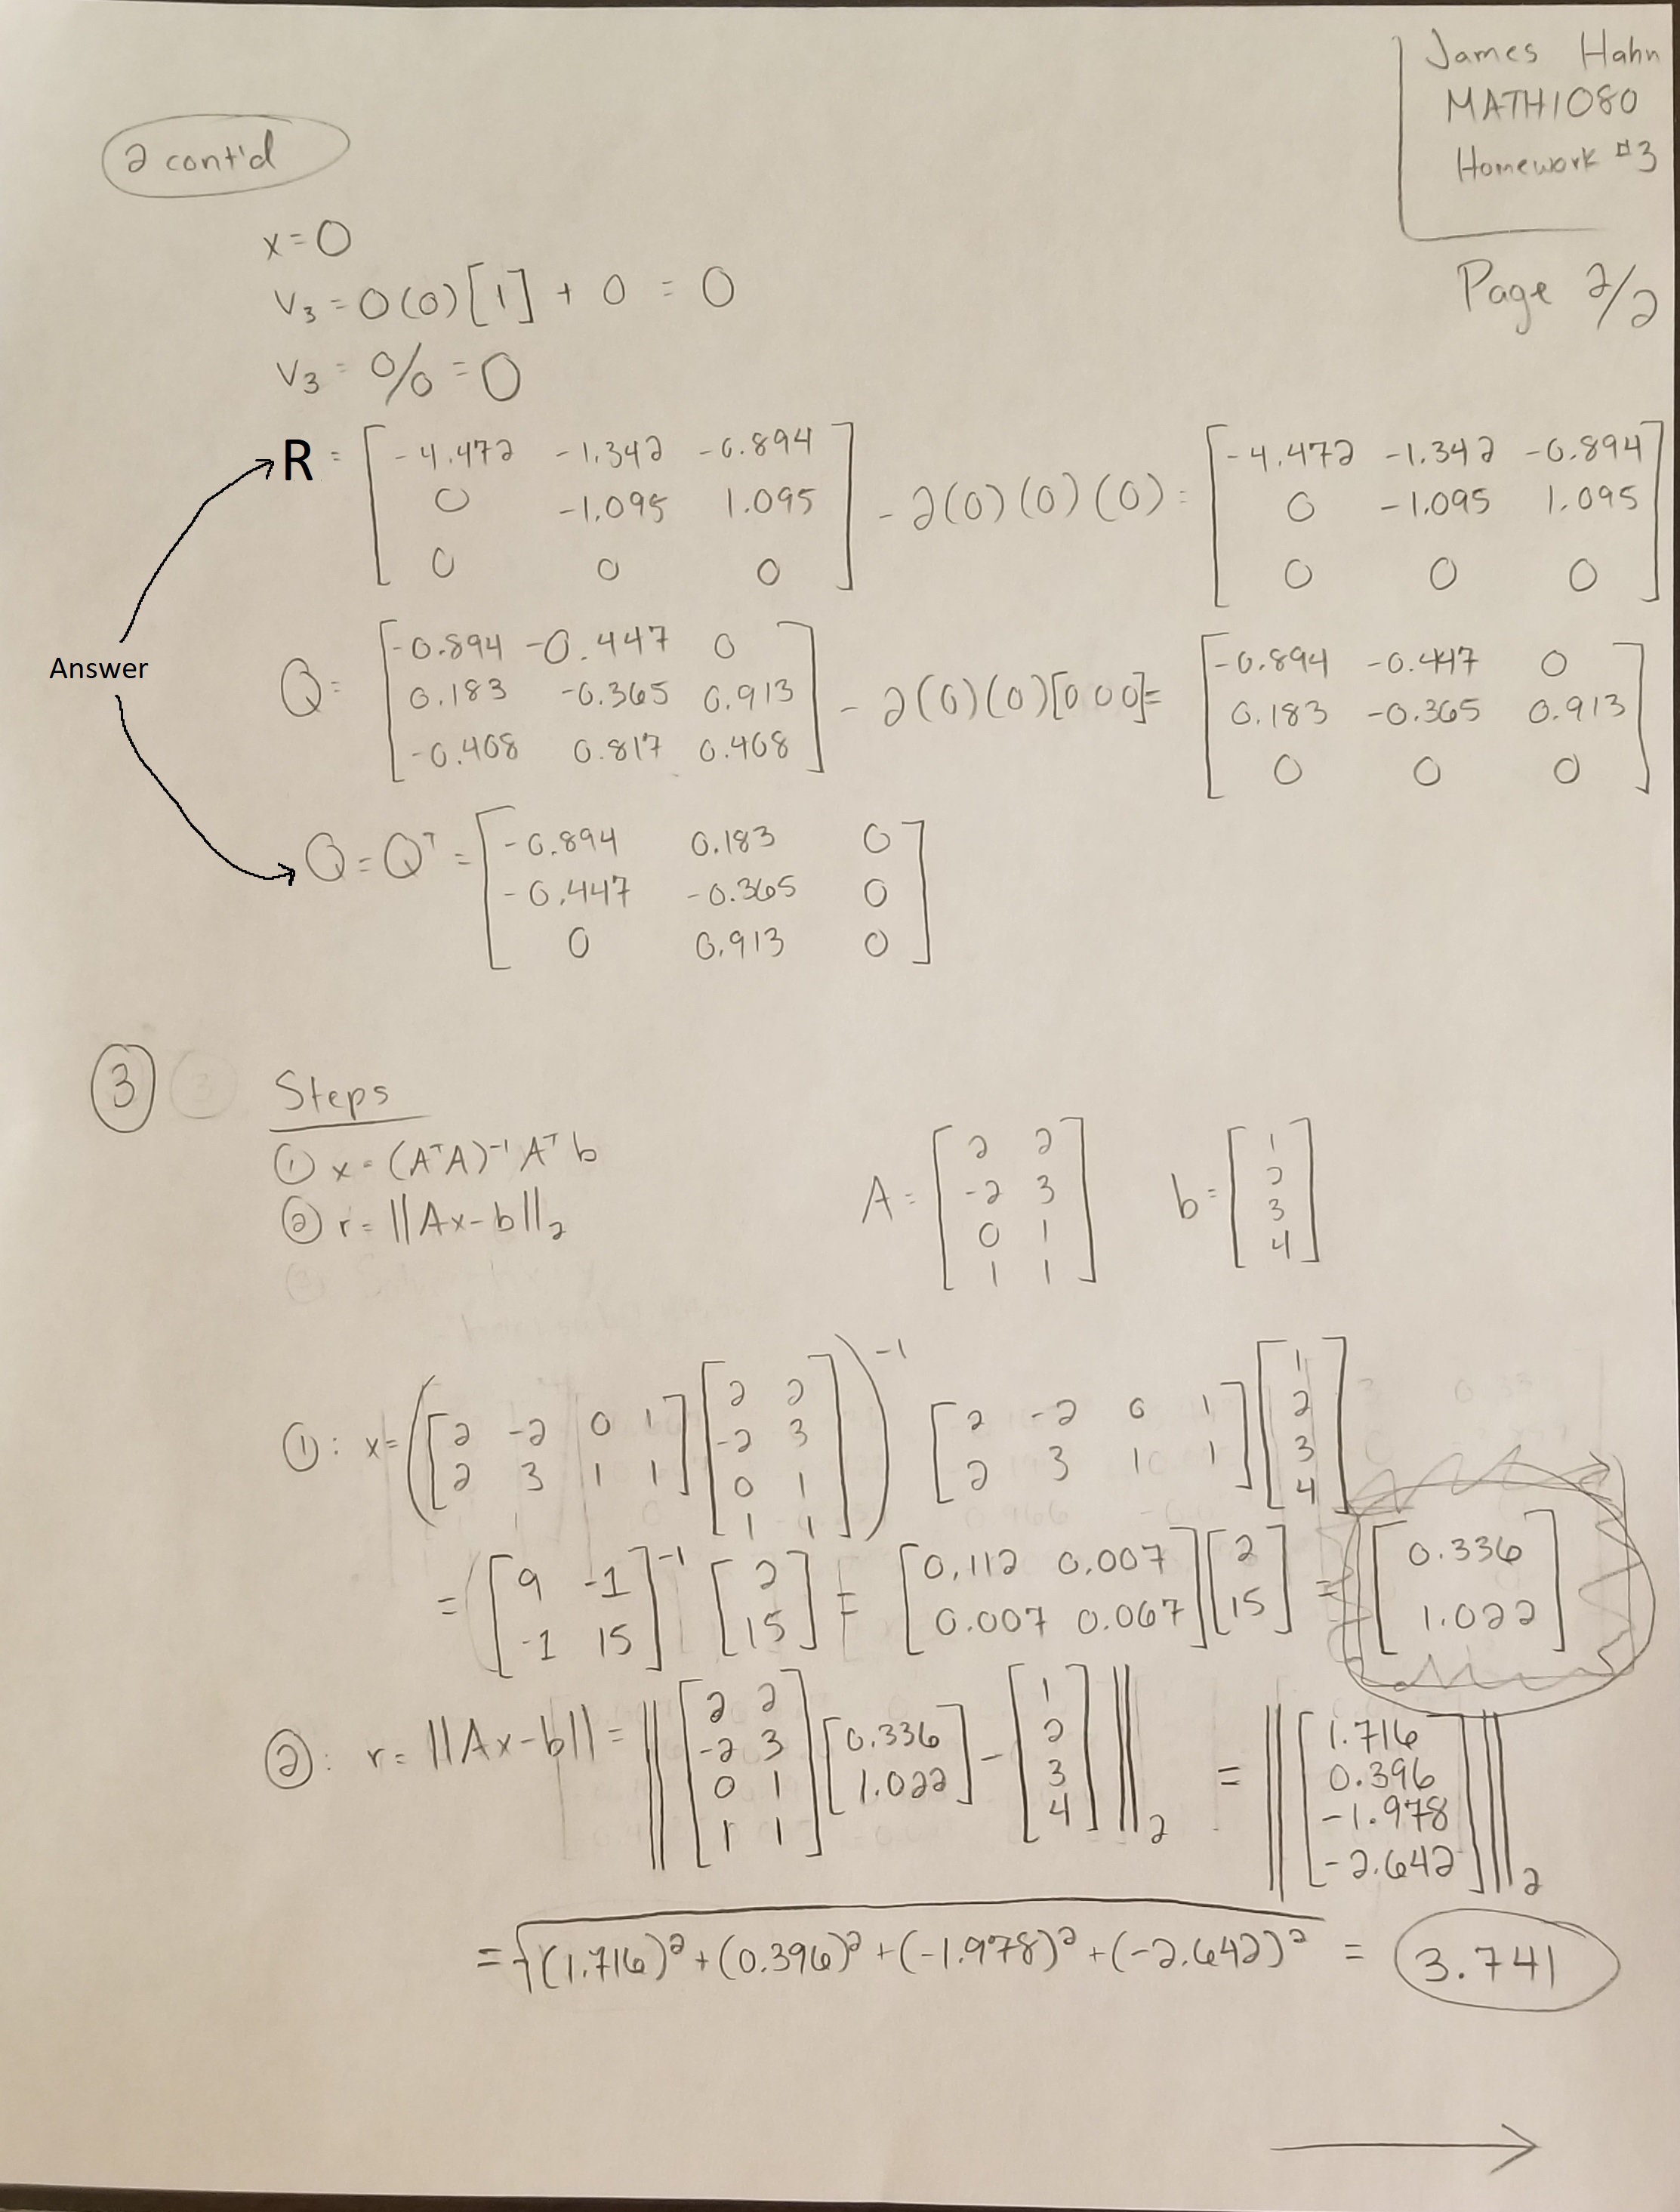 James Hahn
MATH1080
Homework #3
Page 2/2
2 cont'd
x = 0
v₃ = 0(0)[1] + 0 = 0
v₃ = 0/0 = 0
R = [-4.472 -1.342 -0.894; 0 -1.095 1.095; 0 0 0] - 2(0)(0)(0) = [-4.472 -1.342 -0.894; 0 -1.095 1.095; 0 0 0]
Answer
Q = [-0.894 -0.447 0; 0.183 -0.365 0.913; -0.408 0.817 0.408] - 2(0)(0)[0 0 0] = [-0.894 -0.447 0; 0.183 -0.365 0.913; 0 0 0]
Q = Qᵀ = [-0.894 0.183 0; -0.447 -0.365 0; 0 0.913 0]
③ Steps
① x = (AᵀA)⁻¹Aᵀb
② r = ||Ax-b||₂
A = [2 2; -2 3; 0 1; 1 1] b = [1; 2; 3; 4]
①: x = ([2 -2 0 1; 2 3 1 1][2 2; -2 3; 0 1; 1 1])⁻¹ [2 -2 0 1; 2 3 1 1][1; 2; 3; 4]
= [9 -1; -1 15]⁻¹ [2; 15] = [0.112 0.007; 0.007 0.067][2; 15] = [0.336; 1.022]
②: r = ||Ax-b|| = ||[2 2; -2 3; 0 1; 1 1][0.336; 1.022] - [1; 2; 3; 4]||₂ = ||[1.716; 0.396; -1.978; -2.642]||₂
= √((1.716)² + (0.396)² + (-1.978)² + (-2.642)²) = 3.741